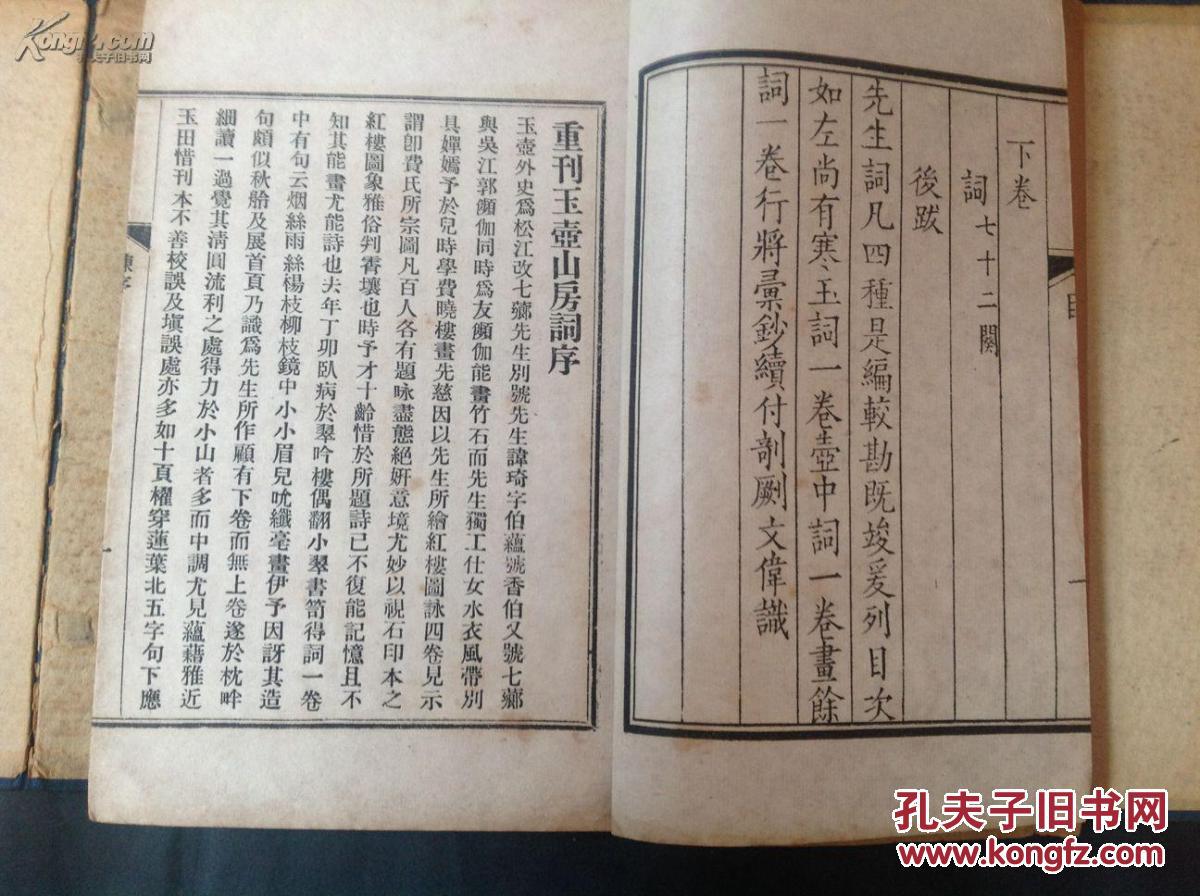 下卷
詞七十二闋
後跋
先生詞凡四種是編較勘既竣爰列目次
如左尚有寒玉詞一卷壺中詞一卷畫餘
詞一卷行將彙鈔續付剞劂文偉識
重刊玉壺山房詞序
玉壺外史爲松江改七薌先生別號先生諱琦字伯蘊號香伯又號七薌
與吳江郭頻伽同時爲友頻伽能畫竹石而先生獨工仕女水衣風帶別
具嬋嫣予於兒時學費曉樓畫先慈因以先生所繪紅樓圖詠四卷見示
謂卽費氏所宗圖凡百人各有題咏盡態絕妍意境尤妙以視石印本之
紅樓圖象雅俗判霄壤也時予才十齡惜於所題詩已不復能記憶且不
知其能畫尤能詩也去年丁卯臥病於翠吟樓偶翻小翠書笥得詞一卷
中有句云烟絲雨絲楊枝柳枝鏡中小小眉兒吮纖毫畫伊予因訝其造
句頗似秋舲及展首頁乃識爲先生所作顧有下卷而無上卷遂於枕畔
細讀一過覺其清圓流利之處得力於小山者多而中調尤見蘊藉雅近
玉田惜刊本不善校誤及塡誤處亦多如十頁櫂穿蓮葉北五字句下應
一
目
一
Kongfz.com
孔夫子旧书网
孔夫子旧书网
www.kongfz.com